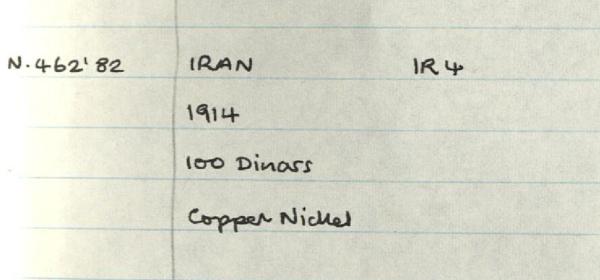 N.462'82 IRAN IR 4
1914
100 Dinars
Copper Nickel